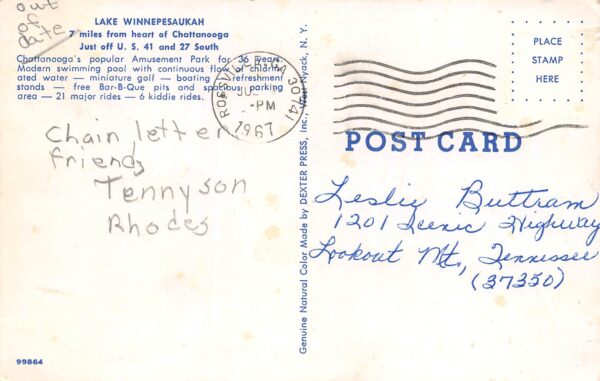 out
of
date
LAKE WINNEPESAUKAH
7 miles from heart of Chattanooga
Just off U. S. 41 and 27 South
Chattanooga's popular Amusement Park for 36 years.
Modern swimming pool with continuous flow of chlorin-
ated water — miniature golf — boating — refreshment
stands — free Bar-B-Que pits and spacious parking
area — 21 major rides — 6 kiddie rides.
Chain letter
friends
Tennyson
Rhodes
99864
Genuine Natural Color Made by DEXTER PRESS, Inc., West Nyack, N. Y.
ROSSVILLE, GA 30741
PM
1967
PLACE
STAMP
HERE
POST CARD
Leslie Buttram
1201 Scenic Highway
Lookout Mt., Tennessee
(37350)